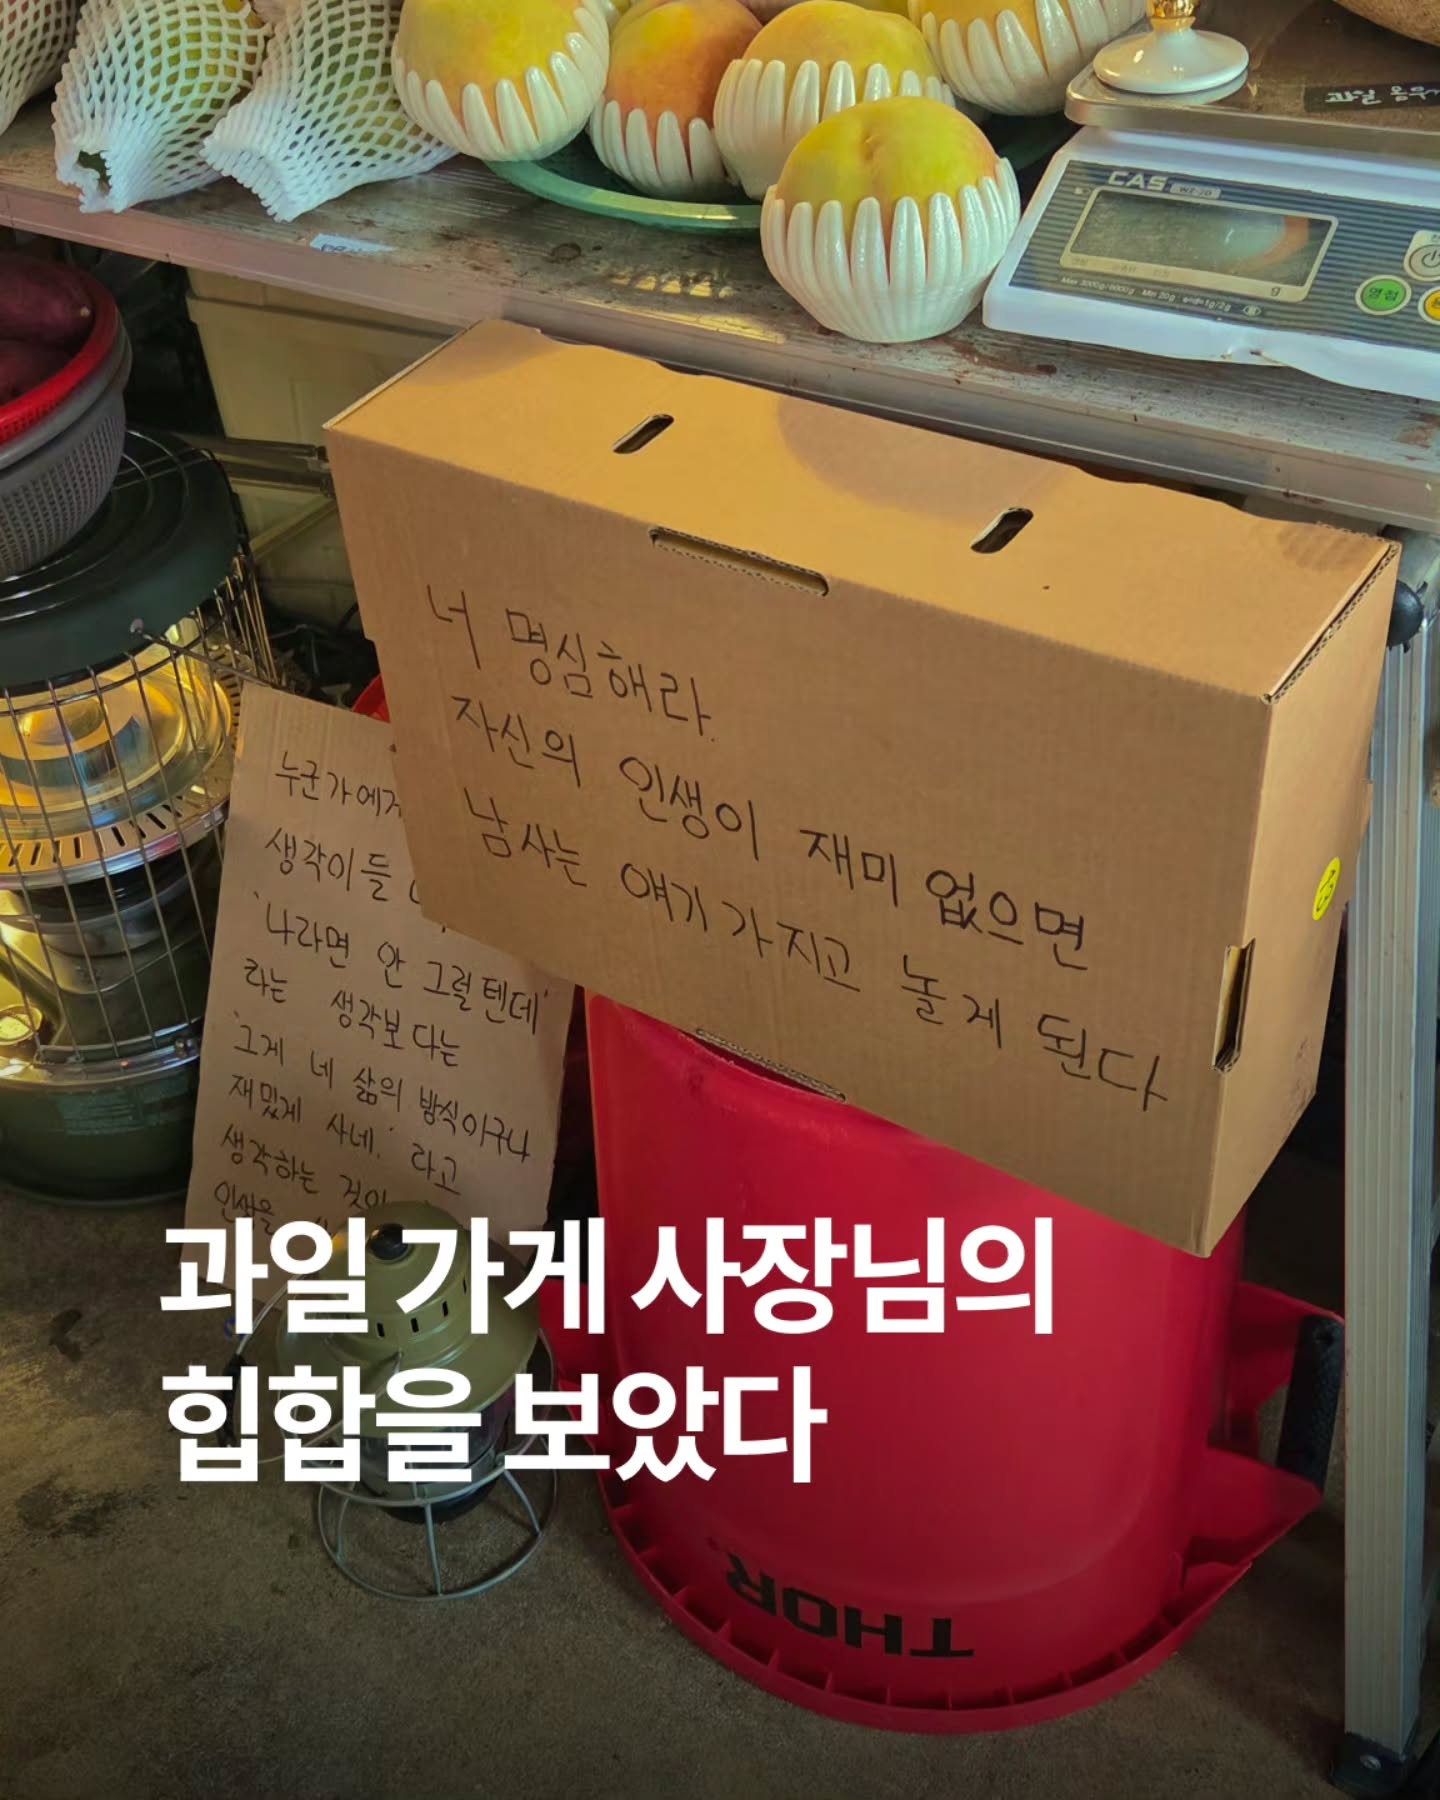 과일
CAS
Max 3000g/6000g Min 20g e=d=1g/2g
g
영점
너 명심해라.
자신의 인생이 재미 없으면
남 사는 얘기 가지고 놀게 된다
누군가에게
생각이 들
'나라면 안 그럴텐데'
라는 생각보다는
'그게 네 삶의 방식이구나
재밌게 사네.' 라고
생각하는 것이
인생을
과일 가게 사장님의
힙합을 보았다
THOR